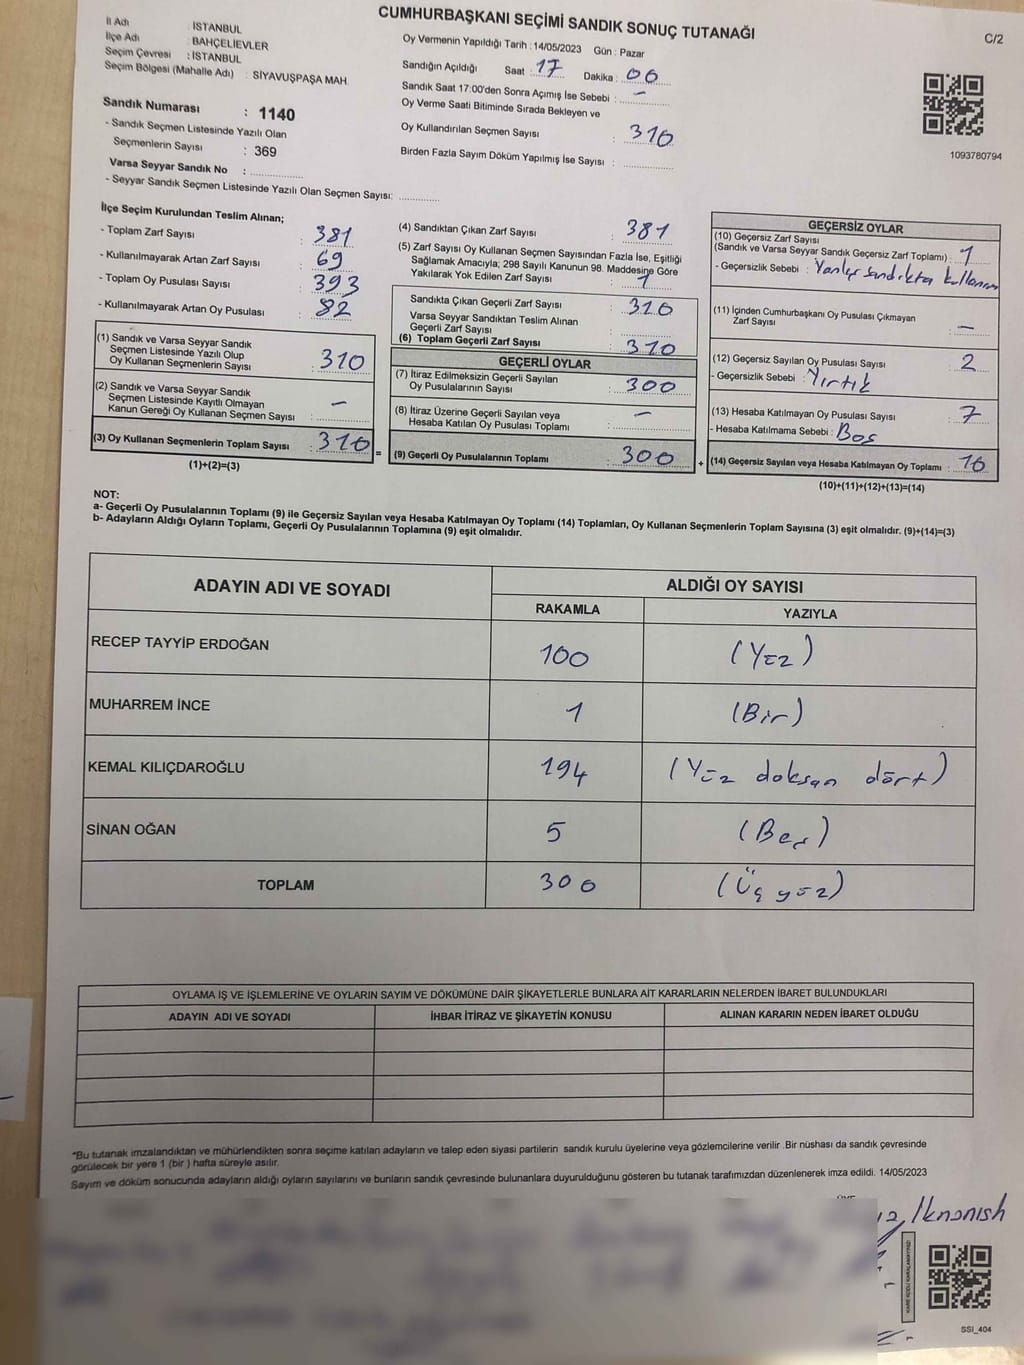 CUMHURBAŞKANI SEÇİMİ SANDIK SONUÇ TUTANAĞI
C/2
İl Adı : İSTANBUL
İlçe Adı : BAHÇELİEVLER
Seçim Çevresi : İSTANBUL
Seçim Bölgesi (Mahalle Adı) : SİYAVUŞPAŞA MAH.
Sandık Numarası : 1140
- Sandık Seçmen Listesinde Yazılı Olan
Seçmenlerin Sayısı : 369
Varsa Seyyar Sandık No :
- Seyyar Sandık Seçmen Listesinde Yazılı Olan Seçmen Sayısı:
Oy Vermenin Yapıldığı Tarih : 14/05/2023 Gün : Pazar
Sandığın Açıldığı Saat : 17 Dakika : 00
Sandık Saat 17:00'den Sonra Açımış İse Sebebi : -
Oy Verme Saati Bitiminde Sırada Bekleyen ve
Oy Kullandırılan Seçmen Sayısı : 310
Birden Fazla Sayım Döküm Yapılmış İse Sayısı :
1093780794
İlçe Seçim Kurulundan Teslim Alınan;
- Toplam Zarf Sayısı : 381
- Kullanılmayarak Artan Zarf Sayısı : 69
- Toplam Oy Pusulası Sayısı : 393
- Kullanılmayarak Artan Oy Pusulası : 82
(1) Sandık ve Varsa Seyyar Sandık
Seçmen Listesinde Yazılı Olup
Oy Kullanan Seçmenlerin Sayısı : 310
(2) Sandık ve Varsa Seyyar Sandık
Seçmen Listesinde Kayıtlı Olmayan
Kanun Gereği Oy Kullanan Seçmen Sayısı : -
(3) Oy Kullanan Seçmenlerin Toplam Sayısı : 310
(1)+(2)=(3)
=
(4) Sandıktan Çıkan Zarf Sayısı : 381
(5) Zarf Sayısı Oy Kullanan Seçmen Sayısından Fazla İse, Eşitliği
Sağlamak Amacıyla; 298 Sayılı Kanunun 98. Maddesine Göre
Yakılarak Yok Edilen Zarf Sayısı : 1
Sandıkta Çıkan Geçerli Zarf Sayısı : 310
Varsa Seyyar Sandıktan Teslim Alınan
Geçerli Zarf Sayısı :
(6) Toplam Geçerli Zarf Sayısı : 310
GEÇERLİ OYLAR
(7) İtiraz Edilmeksizin Geçerli Sayılan
Oy Pusulalarının Sayısı : 300
(8) İtiraz Üzerine Geçerli Sayılan veya
Hesaba Katılan Oy Pusulası Toplamı : -
(9) Geçerli Oy Pusulalarının Toplamı : 300
+
GEÇERSİZ OYLAR
(10) Geçersiz Zarf Sayısı
(Sandık ve Varsa Seyyar Sandık Geçersiz Zarf Toplamı) : 1
- Geçersizlik Sebebi : Yanlış sandıkta kullanım
(11) İçinden Cumhurbaşkanı Oy Pusulası Çıkmayan
Zarf Sayısı : -
(12) Geçersiz Sayılan Oy Pusulası Sayısı : 2
- Geçersizlik Sebebi : Yırtık
(13) Hesaba Katılmayan Oy Pusulası Sayısı : 7
- Hesaba Katılmama Sebebi : Boş
(14) Geçersiz Sayılan veya Hesaba Katılmayan Oy Toplamı : 10
(10)+(11)+(12)+(13)=(14)
NOT:
a- Geçerli Oy Pusulalarının Toplamı (9) ile Geçersiz Sayılan veya Hesaba Katılmayan Oy Toplamı (14) Toplamları, Oy Kullanan Seçmenlerin Toplam Sayısına (3) eşit olmalıdır. (9)+(14)=(3)
b- Adayların Aldığı Oyların Toplamı, Geçerli Oy Pusulalarının Toplamına (9) eşit olmalıdır.
ADAYIN ADI VE SOYADI
ALDIĞI OY SAYISI
RAKAMLA YAZIYLA
RECEP TAYYİP ERDOĞAN 100 (Yüz)
MUHARREM İNCE 1 (Bir)
KEMAL KILIÇDAROĞLU 194 (Yüz doksan dört)
SİNAN OĞAN 5 (Beş)
TOPLAM 300 (Üç yüz)
OYLAMA İŞ VE İŞLEMLERİNE VE OYLARIN SAYIM VE DÖKÜMÜNE DAİR ŞİKAYETLERLE BUNLARA AİT KARARLARIN NELERDEN İBARET BULUNDUKLARI
ADAYIN ADI VE SOYADI İHBAR İTİRAZ VE ŞİKAYETİN KONUSU ALINAN KARARIN NEDEN İBARET OLDUĞU
*Bu tutanak imzalandıktan ve mühürlendikten sonra seçime katılan adayların ve talep eden siyasi partilerin sandık kurulu üyelerine veya gözlemcilerine verilir .Bir nüshası da sandık çevresinde
görülecek bir yere 1 (bir ) hafta süreyle asılır.
Sayım ve döküm sonucunda adayların aldığı oyların sayılarını ve bunların sandık çevresinde bulunanlara duyurulduğunu gösteren bu tutanak tarafımızdan düzenlenerek imza edildi. 14/05/2023
KARE KODU KARALAMAYINIZ!
SSI_404